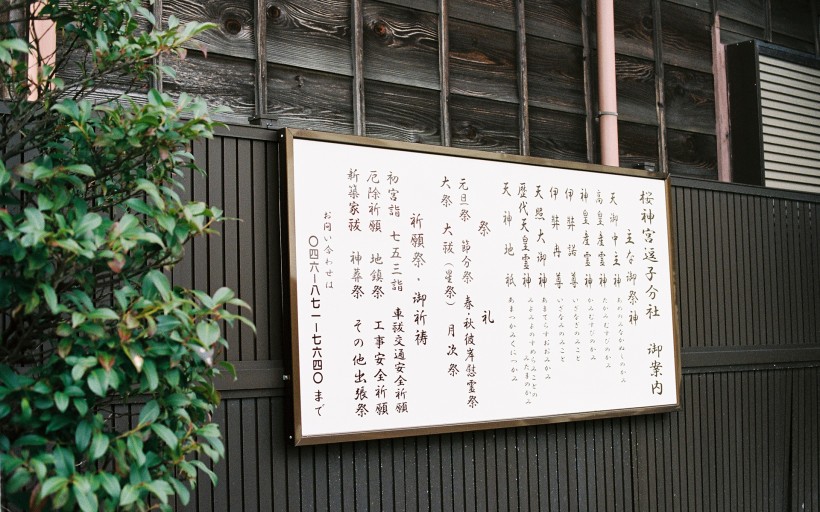 桜神宮逗子分社 御案内
主な御祭神
天御中主神 あめのみなかぬしのかみ
高皇産霊神 たかみむすびのかみ
神皇産霊神 かみむすびのかみ
伊弉諾尊 いざなぎのみこと
伊弉冉尊 いざなみのみこと
天照大御神 あまてらすおおみかみ
歴代天皇霊神 みよみよのすめらみことのみたまのかみ
天神地祇 あまつかみくにつかみ
祭 礼
元旦祭 節分祭 春・秋彼岸慰霊祭
大祭 大祓(星祭) 月次祭
祈願祭・御祈祷
初宮詣 七五三詣 車祓交通安全祈願
厄除祈願 地鎮祭 工事安全祈願
新築家祓 神葬祭 その他出張祭
お問い合わせは
〇四六ー八七一ー七六四〇 まで